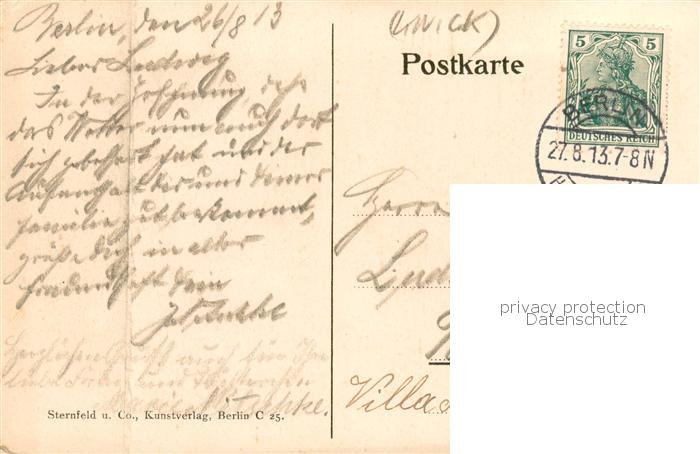 Berlin, den 26/8 13
Lieber Ludwig
In der Hoffnung, daß
das Wetter nun auch dort
sich gebessert hat und der
Aufenthalt dir und deiner
Familie gut bekommt,
grüße dich in alter
Freundschaft dein
Herzlichen Gruß auch für Ihre
liebe Frau und
Sternfeld u. Co., Kunstverlag, Berlin C 25.
Postkarte
5 5
DEUTSCHES REICH
BERLIN
27.8.13.7-8N
Herrn
Villa
privacy protection
Datenschutz